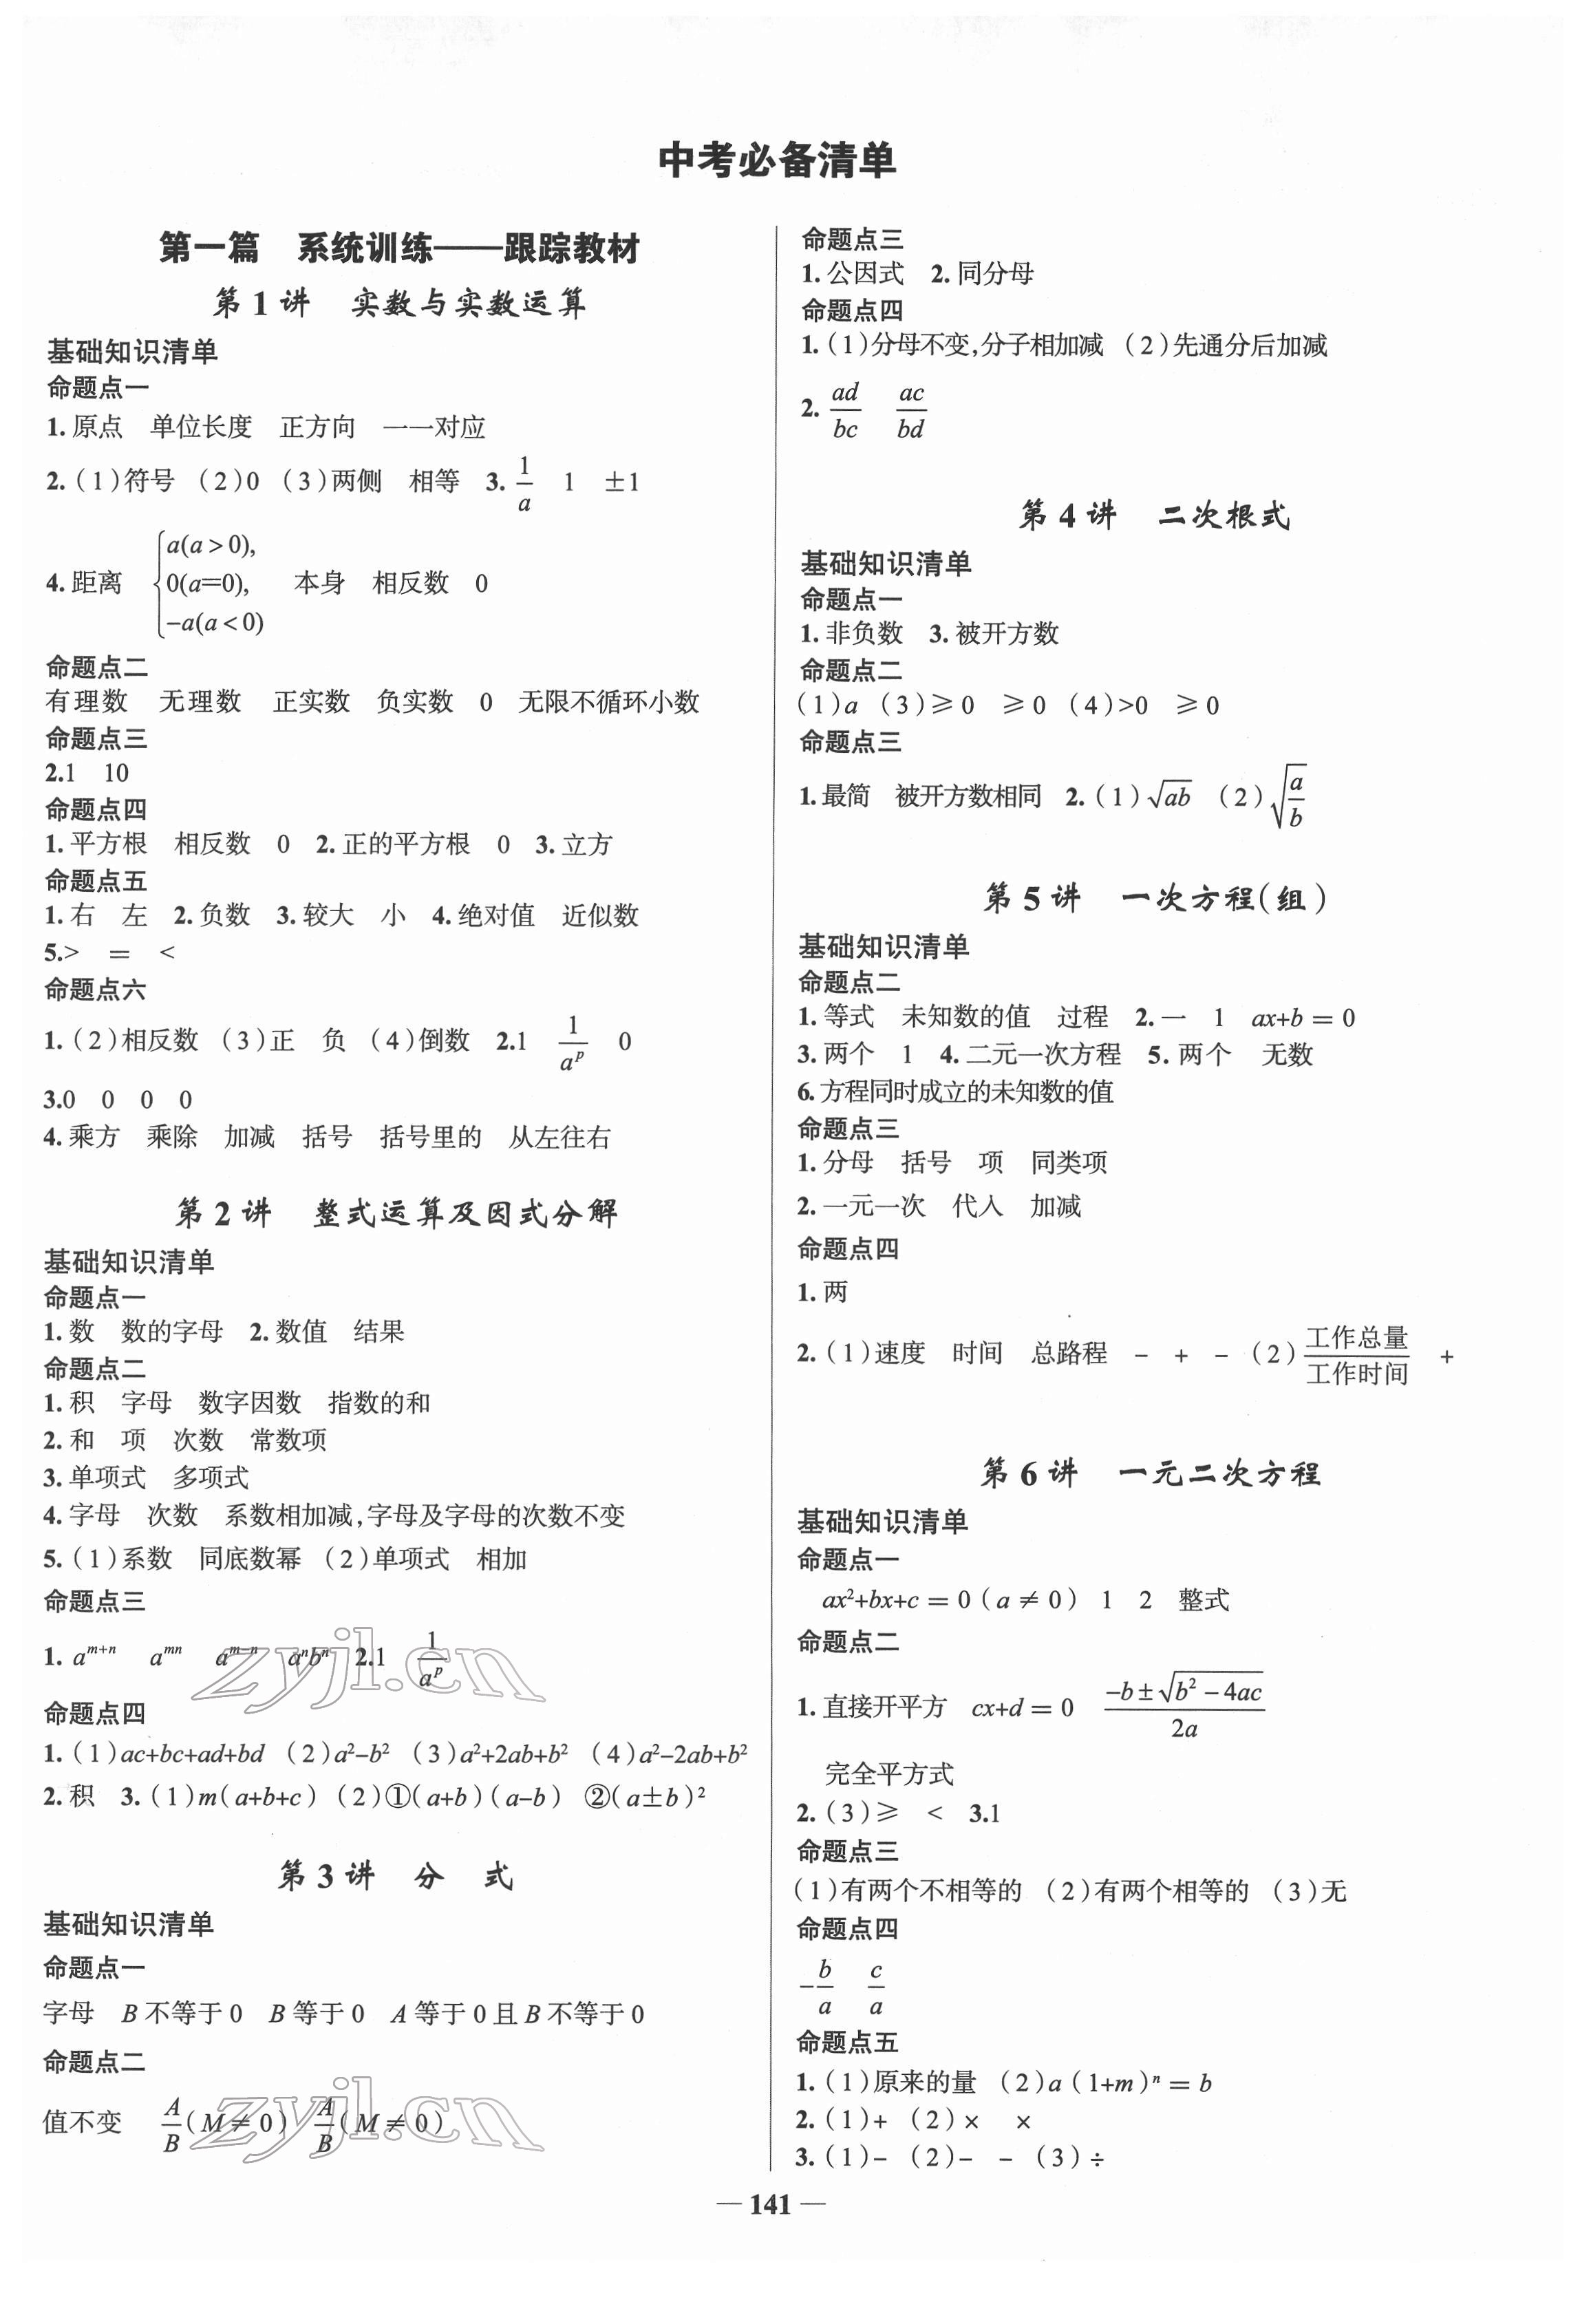 中考必备清单
第一篇 系统训练——跟踪教材
第 1 讲 实数与实数运算
基础知识清单
命题点一
1. 原点 单位长度 正方向 一一对应
2. (1)符号 (2)0 (3)两侧 相等 3. 1/a 1 ±1
4. 距离 {a(a>0), 0(a=0), -a(a<0) 本身 相反数 0
命题点二
有理数 无理数 正实数 负实数 0 无限不循环小数
命题点三
2.1 10
命题点四
1. 平方根 相反数 0 2. 正的平方根 0 3. 立方
命题点五
1. 右 左 2. 负数 3. 较大 小 4. 绝对值 近似数
5.> = <
命题点六
1. (2)相反数 (3)正 负 (4)倒数 2.1 1/a^p 0
3.0 0 0 0
4. 乘方 乘除 加减 括号 括号里的 从左往右
第 2 讲 整式运算及因式分解
基础知识清单
命题点一
1. 数 数的字母 2. 数值 结果
命题点二
1. 积 字母 数字因数 指数的和
2. 和 项 次数 常数项
3. 单项式 多项式
4. 字母 次数 系数相加减,字母及字母的次数不变
5. (1)系数 同底数幂 (2)单项式 相加
命题点三
1. a^(m+n) a^(mn) a^(m-n) a^n b^n 2.1 1/a^p
命题点四
1. (1)ac+bc+ad+bd (2)a²-b² (3)a²+2ab+b² (4)a²-2ab+b²
2. 积 3. (1)m(a+b+c) (2)①(a+b)(a-b) ②(a±b)²
第 3 讲 分 式
基础知识清单
命题点一
字母 B 不等于 0 B 等于 0 A 等于 0 且 B 不等于 0
命题点二
值不变 A/B(M≠0) A/B(M≠0)
命题点三
1. 公因式 2. 同分母
命题点四
1. (1)分母不变,分子相加减 (2)先通分后加减
2. ad/bc ac/bd
第 4 讲 二次根式
基础知识清单
命题点一
1. 非负数 3. 被开方数
命题点二
(1)a (3)≥0 ≥0 (4)>0 ≥0
命题点三
1. 最简 被开方数相同 2. (1)√(ab) (2)√(a/b)
第 5 讲 一次方程(组)
基础知识清单
命题点二
1. 等式 未知数的值 过程 2. 一 1 ax+b=0
3. 两个 1 4. 二元一次方程 5. 两个 无数
6. 方程同时成立的未知数的值
命题点三
1. 分母 括号 项 同类项
2. 一元一次 代入 加减
命题点四
1. 两
2. (1)速度 时间 总路程 - + - (2)工作总量/工作时间 +
第 6 讲 一元二次方程
基础知识清单
命题点一
ax²+bx+c=0(a≠0) 1 2 整式
命题点二
1. 直接开平方 cx+d=0 (-b±√(b²-4ac))/2a
完全平方式
2. (3)≥ < 3.1
命题点三
(1)有两个不相等的 (2)有两个相等的 (3)无
命题点四
-b/a c/a
命题点五
1. (1)原来的量 (2)a(1+m)ⁿ=b
2. (1)+ (2)× ×
3. (1)- (2)- - (3)÷
— 141 —
zyjl.cn
zyjl.cn